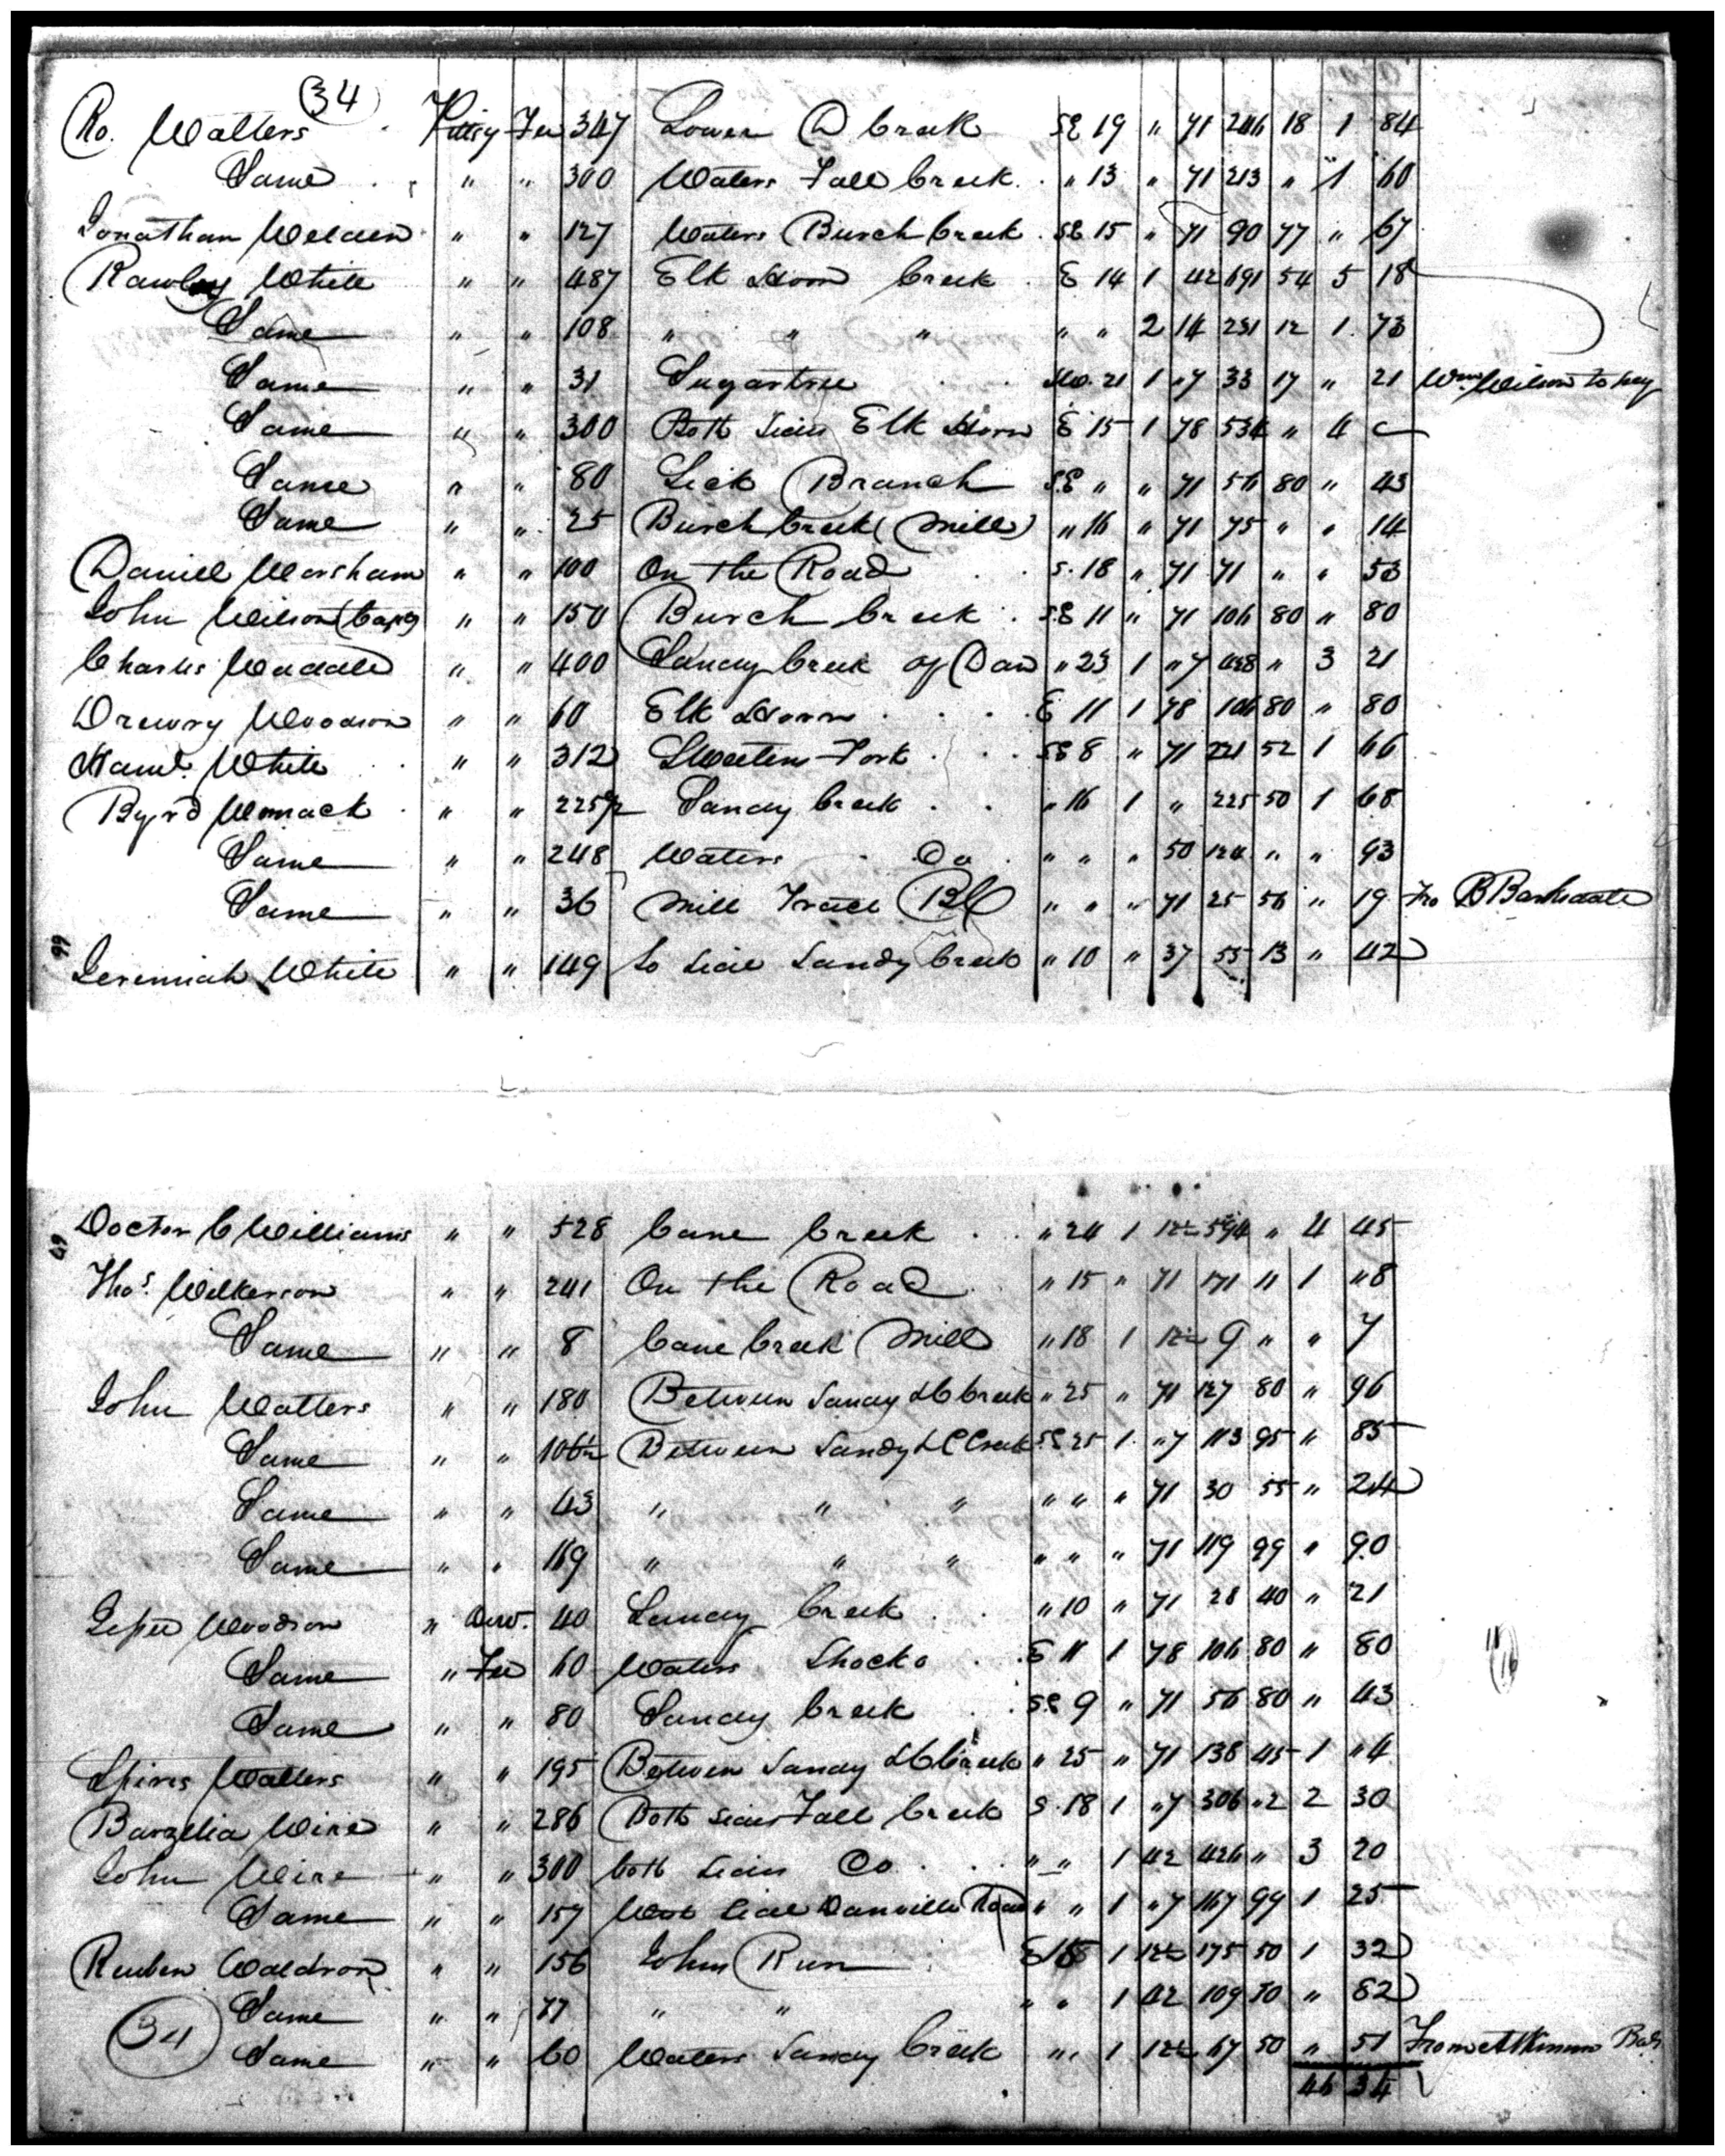 (34)
Ro. Walters Pittsy Fee 347 Lower D Creek SE 19 " 71 246 18 1 84
Same " " 300 Waters Fall Creek " 13 " 71 213 " 1 60
Jonathan " " 127 Waters Burch Creek SE 15 " 71 90 77 " 67
Rawley White " " 487 Elk Horn Creek E 14 1 42 691 54 5 18
Same " " 108 " " " " " 2 14 231 12 1 73
Same " " 31 Sugartree 21 1 "7 33 17 " 21 Wm Wilson to pay
Same " " 300 Both Sides Elk Horn E 15 1 78 534 " 4
Same " " 80 Lick Branch SE " " 71 56 80 " 43
Same " " 25 Burch Creek (Mill) " 16 " 71 75 " " 14
Daniel Worsham " " 100 On the Road S. 18 " 71 71 " " 53
John Wilson (Capt) " " 150 Burch Creek SE 11 " 71 106 80 " 80
Charles " " 400 Sandy Creek of Dan " 23 1 "7 428 " 3 21
Drewry Woodson " " 60 Elk Horn E 11 1 78 106 80 " 80
Haml. White " " 312 Fork SE 8 " 71 221 52 1 66
Byrd Womack " " 225½ Sandy Creek " 16 1 " 225 50 1 68
Same " " 248 Waters Do " " " 50 124 " " 93
Same " " 36 Mill Tract " " " 71 25 56 " 19 Fro B Barksdale
Jeremiah White " " 149 So Side Sandy Creek " 10 " 37 55 13 " 42
Doctor C Williams " " 528 Cane Creek " 24 1 12½ 594 " 4 45
Thos. Wilkerson " " 241 On the Road " 15 " 71 171 11 1 "8
Same " " 8 Cane Creek Mill " 18 1 12½ 9 " " 7
John Walters " " 180 Between Sandy & C Creek " 25 " 71 127 80 " 96
Same " " 106½ Between Sandy & C Creek SE 25 1 "7 113 95 " 85
Same " " 43 " " " " " " 71 30 55 " 24
Same " " 169 " " " " " " 71 119 99 " 90
Jesse Woodson " Do. 40 Sandy Creek " 10 " 71 28 40 " 21
Same " Fee 60 Waters Shocko E 11 1 78 106 80 " 80
Same " " 80 Sandy Creek SE 9 " 71 56 80 " 43
Spires Walters " " 195 Between Sandy & C Creek " 25 " 71 138 45 1 "4
Barzilia Wire " " 286 Both Sides Fall Creek S. 18 1 "7 306 "2 2 30
John Wire " " 300 both Sides Do " " 1 42 426 " 3 20
Same " " 157 West Side Danville Road " " 1 "7 167 99 1 25
Reuben Waldron " " 156 Johns Run E 1 12½ 175 50 1 32
Same " " 77 " " " " 1 42 109 70 " 82
(34) Same " " 60 Waters Sandy Creek " " 1 12½ 67 50 " 51
46 34